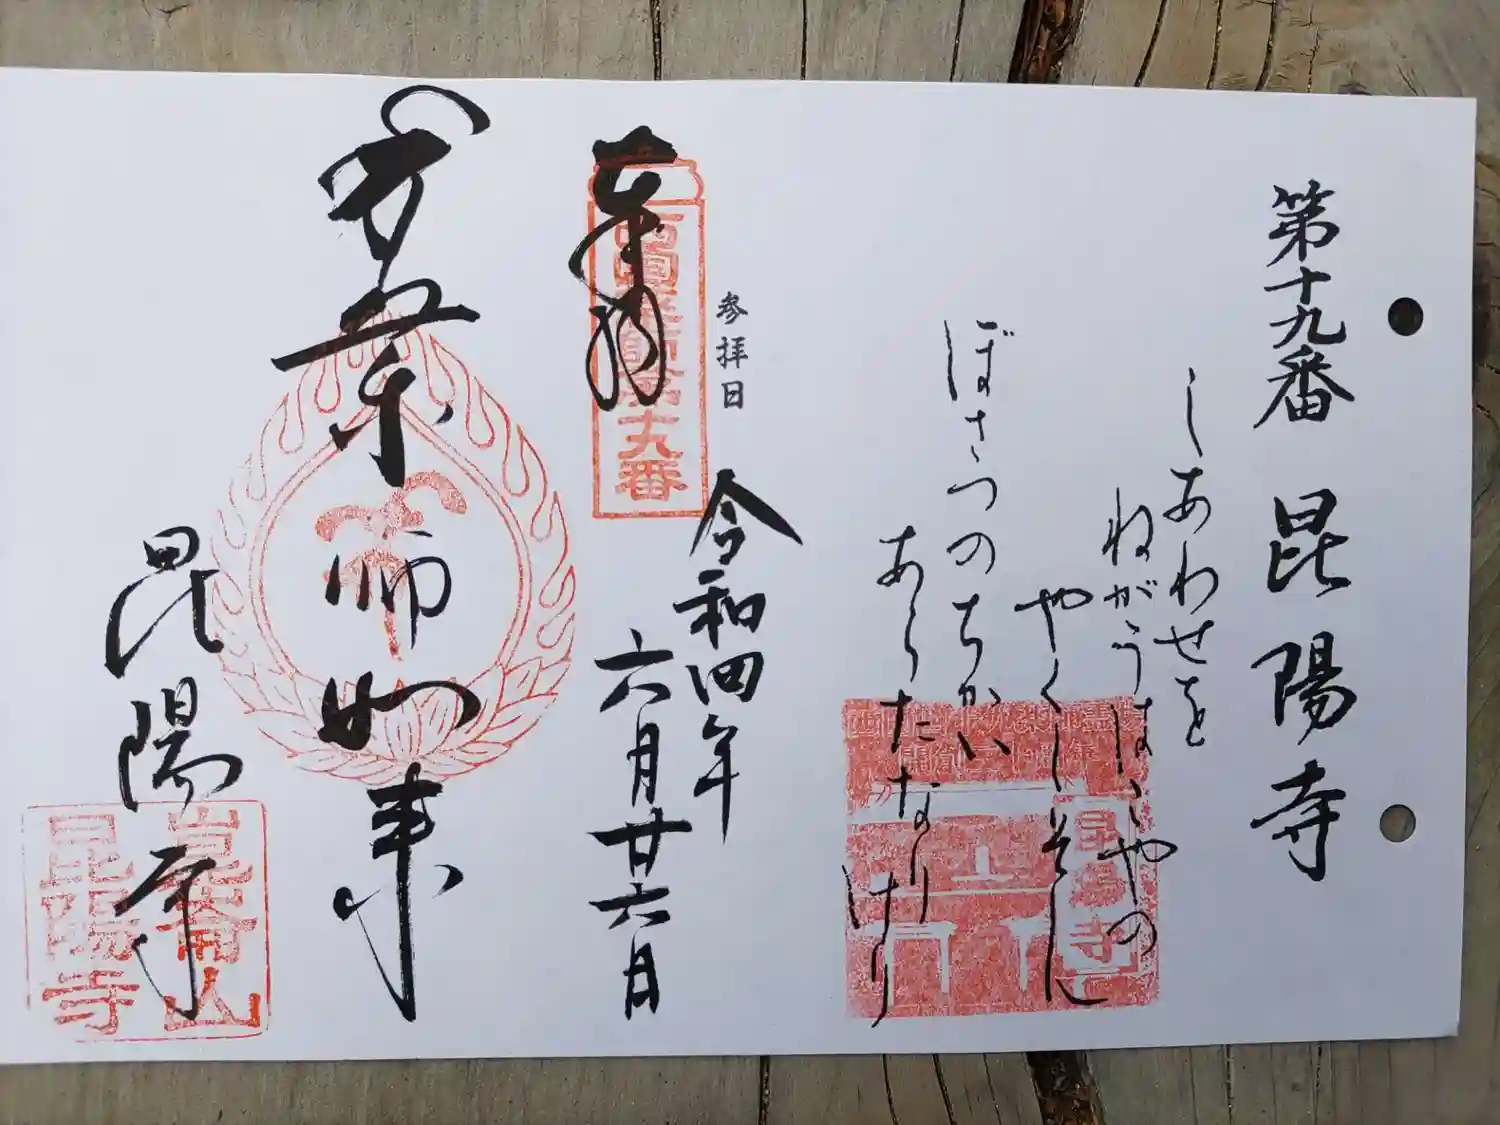 第十九番 昆陽寺
しあわせを
ねがうはこやの
やくしそん
ぼさつのちかい
あらたなり
けり
参拝日
令和四年
六月廿六日
奉拝
西国薬師第十九番
薬師如来
昆陽寺
崑崙山
昆陽寺